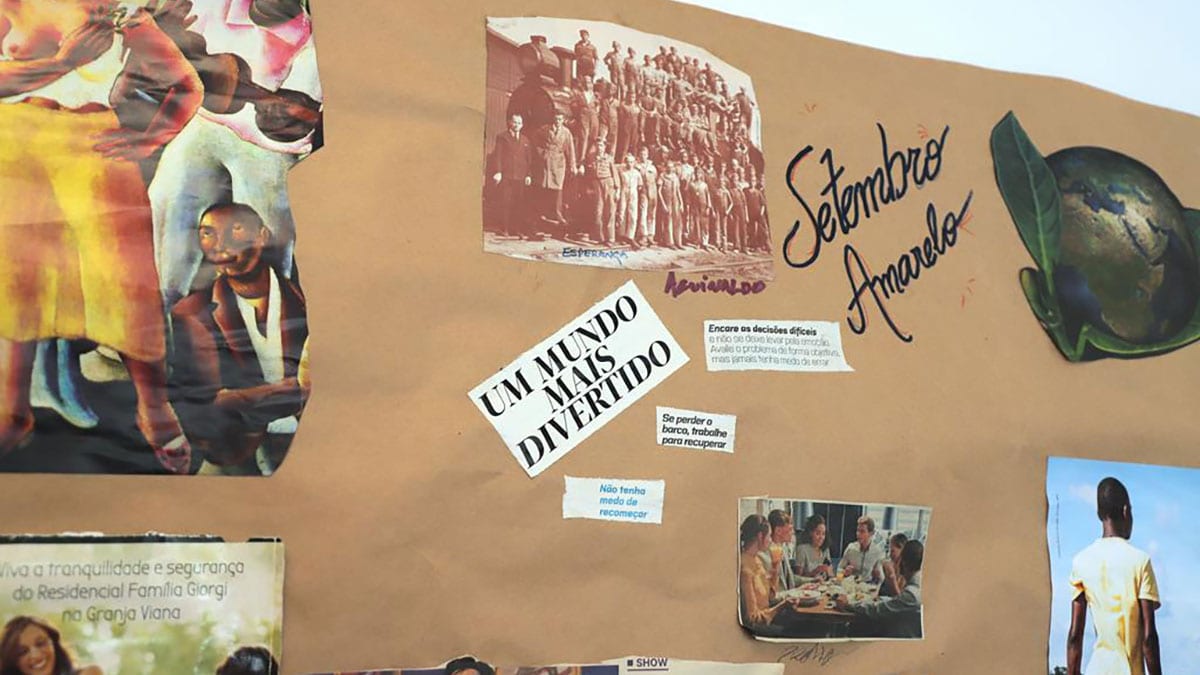 Setembro
Amarelo
ESPERANÇA
AGUINALDO
UM MUNDO
MAIS
DIVERTIDO
Encare as decisões difíceis
e não se deixe levar pela emoção.
Avalie o problema de forma objetiva,
mas jamais tenha medo de errar
Se perder o
barco, trabalhe
para recuperar
Não tenha
medo de
recomeçar
Viva a tranquilidade e segurança
do Residencial Família Giorgi
na Granja Viana
SHOW